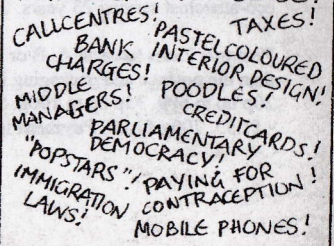 CALLCENTRES!
TAXES!
BANK
CHARGES!
PASTELCOLOURED
INTERIOR DESIGN!
MIDDLE
MANAGERS!
POODLES!
CREDITCARDS!
PARLIAMENTARY
DEMOCRACY!
"POPSTARS"!
PAYING FOR
CONTRACEPTION!
IMMIGRATION
LAWS!
MOBILE PHONES!